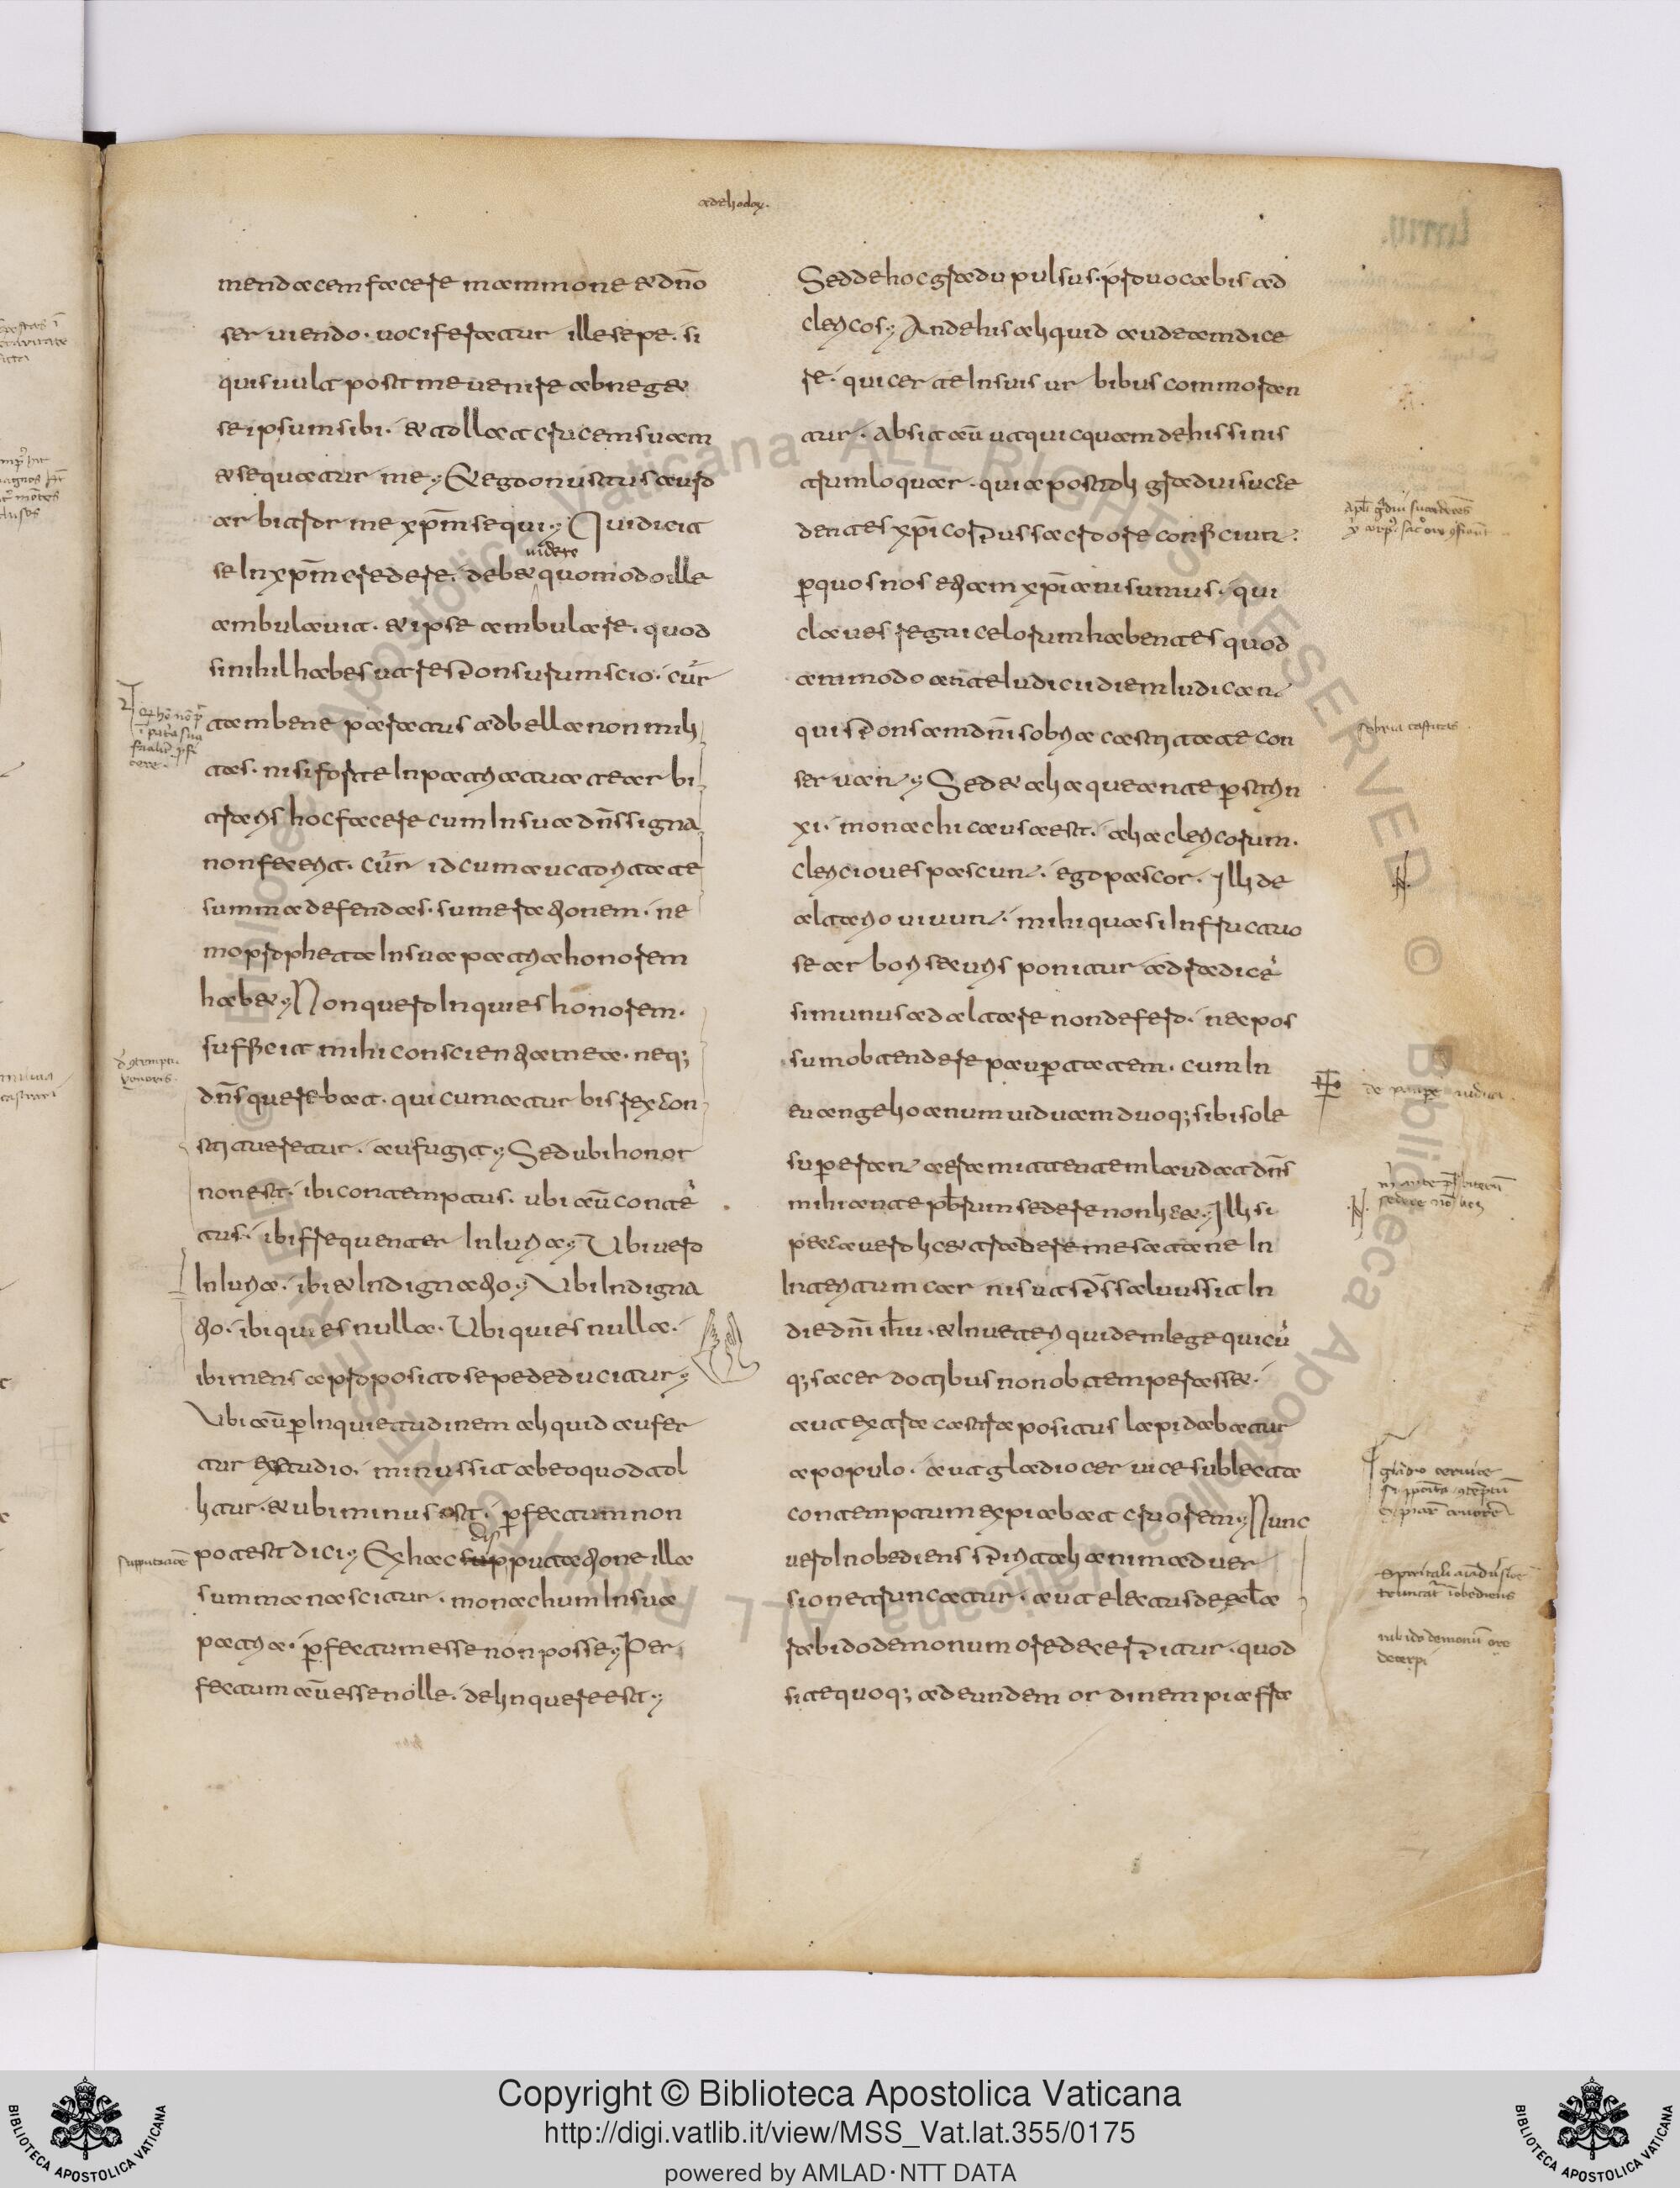 ad eliodor.
mendacem facere mammone et dño
seruiendo. uociferatur ille sepe. si
quis uult post me uenire abneget
se ipsum sibi. et tollat crucem suam
et sequatur me; Et ego onustus auro
arbitror me xp̄m sequi; Qui dicit
se In xp̄m credere. debet quomodo ille
uidere
ambulauit. et ipse ambulare. quod
si nihil habes ut responsurum scio. cur
tam bene paratus ad bella non mili
tas. nisi forte In patria tua te arbi
traris hoc facere cum In sua dñs signa
non fecerit. cur id cum auctoritate
summa defendas. sume rationem. ne
mo propheta In sua patria honorem
habet; Non quero Inquies honorem.
sufficit mihi conscientia mea. neq;
dñs querebat. qui cum a turbis rex con
stitueretur. aufugit; Sed ubi honor
non est. ibi contemptus. ubi aū conte
tus. ibi frequenter Iniuria; Ubi uero
Iniuria. ibi et Indignatio; Ubi Indigna
tio. ibi quies nulla. Ubi quies nulla.
ibi mens a proposito sepe deducitur;
Ubi aū p Inquietudinem aliquid aufer
tur ex studio. minus sit ab eo quod tol
litur. et ubi minus est. pfectum non
potest dici; Ex hac supputatione illa
dis
summa nascitur. monachum In sua
patria. pfectum esse non posse; Per
fectum aū esse nolle. delinquere est;
Sed de hoc gradu pulsus. prouocabis ad
clericos; An de his aliquid audeam dice
re. qui certe In suis urbibus commoran
tur. Absit aū ut quicquam de his sinis
trum loquar. qui apostoli gradui succe
dentes xp̄i corpus sacro ore conficiunt.
p quos nos etiam xp̄iani sumus. qui
claues regni celorum habentes quod
ammodo ante Iudicii diem Iudicant.
qui sponsam dñi sobria castitate con
seruant; Sed et alia que ante pstrin
xi. monachi causa est. alia clericorum.
clerici oues pascunt. ego pascor. Illi de
altario uiuunt. mihi quasi Infructuo
se arbori securis ponitur ad radicē
si munus ad altare non defero. nec pos
sum obtendere paupertatem. cum In
euangelio anum uiduam duo q; sibi sole
superant aera mittentem laudat dñs
mihi ante pbrum sedere non licet; Illi si
peccauero licet tradere me satane In
Interitum carnis ut sps saluus sit In
die dñi ihu. et In ueteri quidem lege quicū
q; sacerdotibus non obtemperasset.
aut extra castra positus lapidabatur
a populo. aut gladio ceruice subiecta
contemptum expiabat cruorem; Nunc
uero Inobediens spiritali animaduer
sione truncatur. aut eiectus de eccla
rabido demonum ore decerpitur. quod
si te quoq; ad eundem ordinem pia fra
supputatione
sobria castitas
de paupe uidua
rabido demonū ore
decerpi
Copyright © Biblioteca Apostolica Vaticana
http://digi.vatlib.it/view/MSS_Vat.lat.355/0175
powered by AMLAD·NTT DATA
BIBLIOTECA APOSTOLICA VATICANA
BIBLIOTECA APOSTOLICA VATICANA